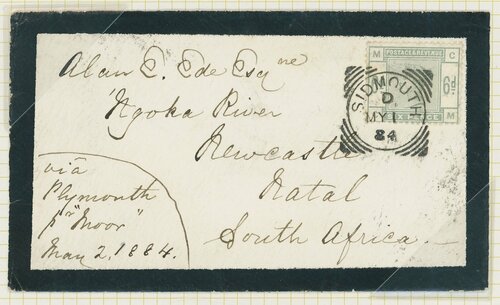 Alan E. Ede Esqre
'Ngoka River
Newcastle
Natal
South Africa.
via
Plymouth
pr "Moor"
May 2, 1884.
POSTAGE & REVENUE
M C
6d
M
SIDMOUTH
D.
MY 1
84